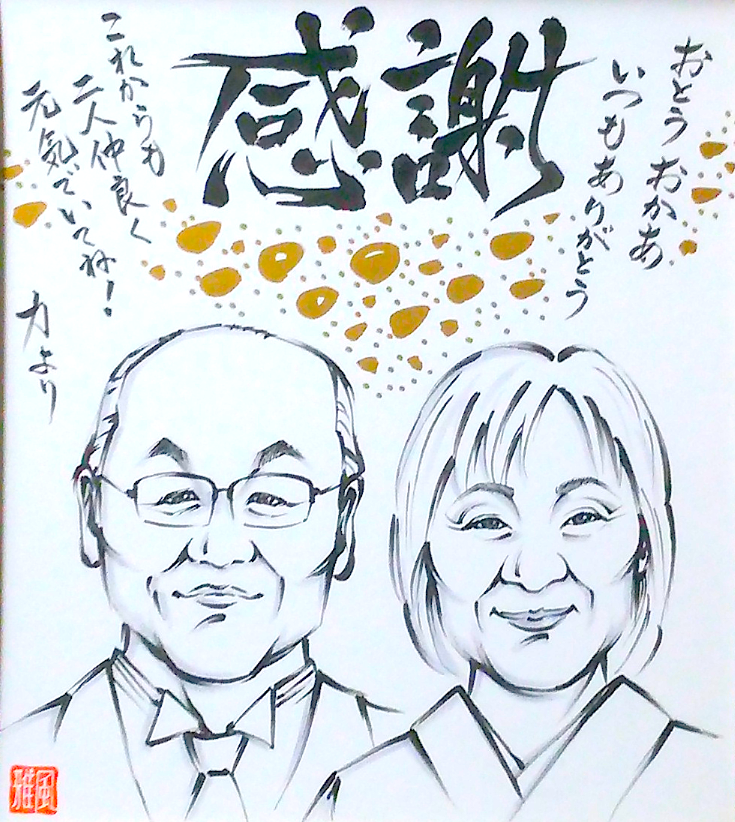 感謝
おとう おかあ
いつもありがとう
これからも
二人仲良く
元気でいてね!
力より
雅風